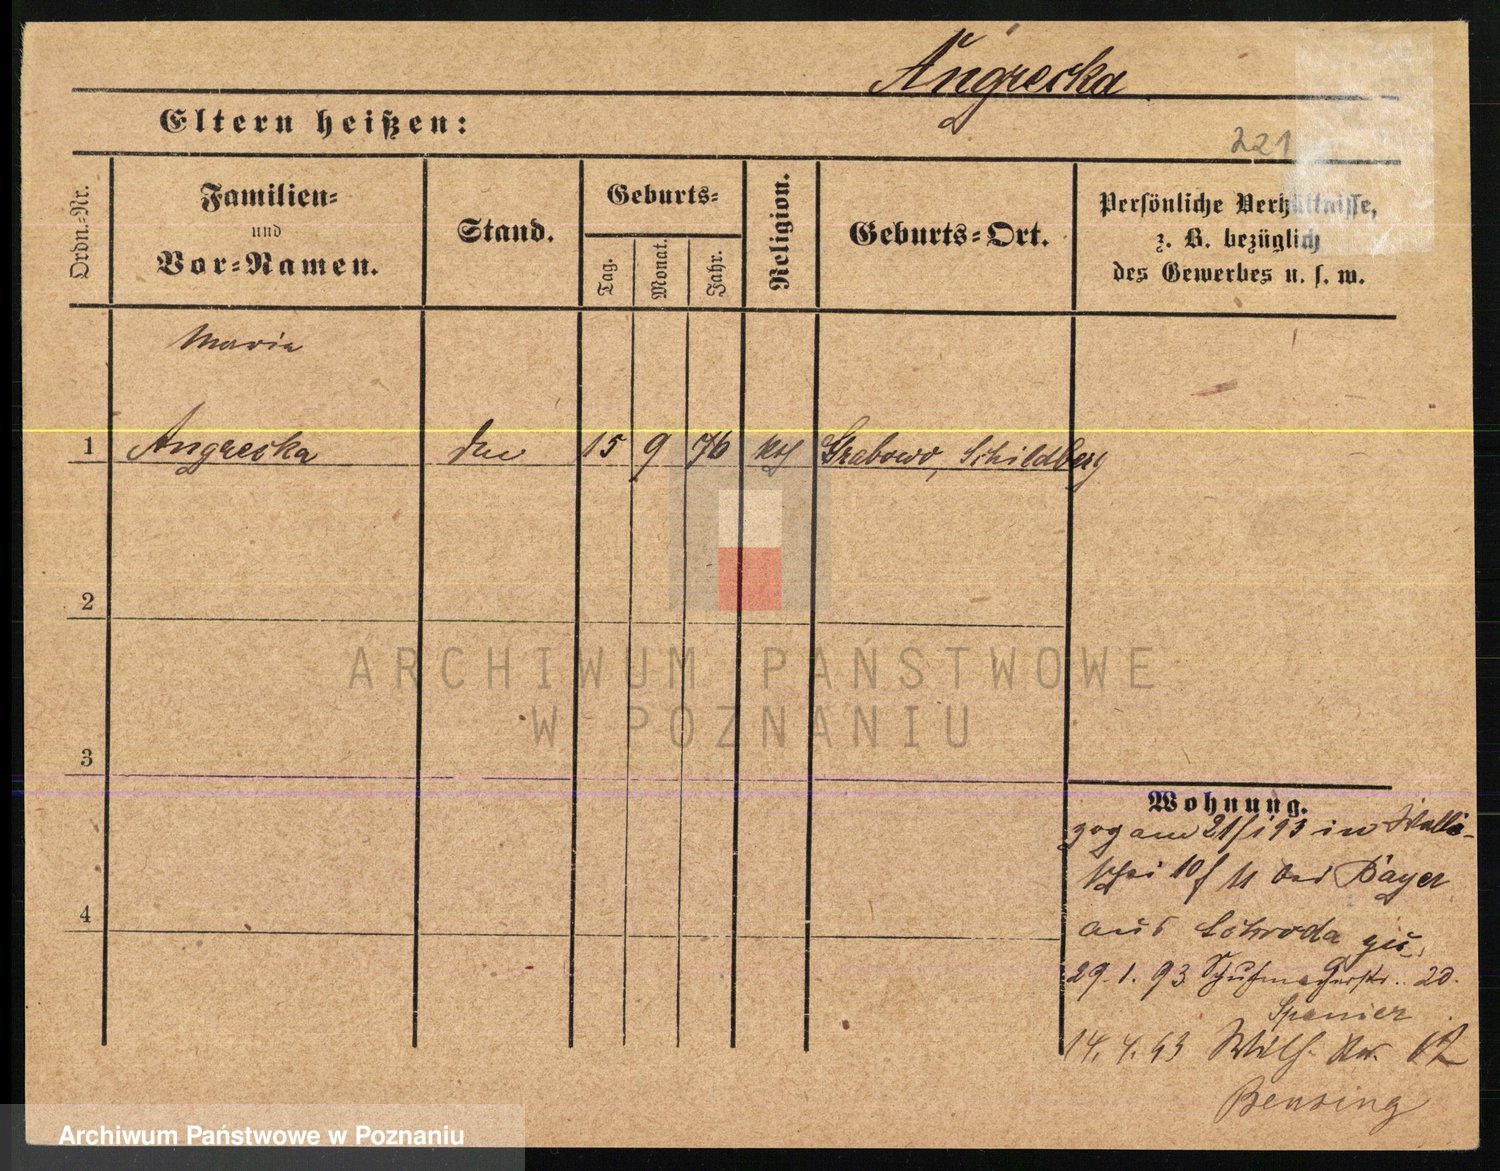 Angrecka
Eltern heißen:
221
Ordn.=Nr.
Familien=
und
Vor=Namen.
Stand.
Geburts=
Tag.
Monat.
Jahr.
Religion.
Geburts=Ort.
Persönliche Verhältnisse,
z. B. bezüglich
des Gewerbes u. s. w.
Maria
1 Angrecka 15 9 76 Grabowo, Schildberg
2
3
4
ARCHIWUM PAŃSTWOWE
W POZNANIU
Wohnung.
zog am 21/1 93 in Walli-
schei 10/11 bei Bayer
aus Schroda zu
29. 1. 93 Schuhmacherstr. 20.
Spanier
14. 4. 93
Bensing
Archiwum Państwowe w Poznaniu